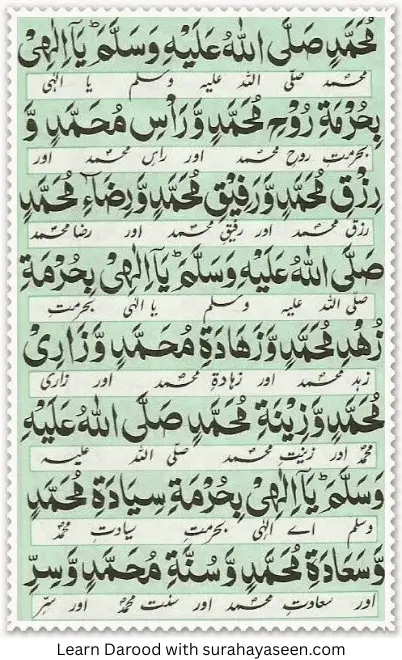 مُحَمَّدٍ صَلَّى اللهُ عَلَيْهِ وَسَلَّمَ ؕ يَآ اِلٰهِىْ
محمد صلی اللہ علیہ وسلم یا الٰہی
بِحُرْمَةِ رُوْحِ مُحَمَّدٍ وَّرَاْسِ مُحَمَّدٍ وَّ
بحرمتِ روح محمد اور راسِ محمد اور
رِزْقِ مُحَمَّدٍ وَّرَفِيْقِ مُحَمَّدٍ وَّرِضَآءِ مُحَمَّدٍ
رزق محمد اور رفیقِ محمد اور رضا محمد
صَلَّى اللهُ عَلَيْهِ وَسَلَّمَ ؕ يَآ اِلٰهِىْ بِحُرْمَةِ
صلی اللہ علیہ وسلم یا الٰہی بحرمتِ
زُهْدِ مُحَمَّدٍ وَّزَهَادَةِ مُحَمَّدٍ وَّزَارِىْ
زہد محمد اور زہادۃِ محمد اور زاری
مُحَمَّدٍ وَّزِيْنَةِ مُحَمَّدٍ صَلَّى اللهُ عَلَيْهِ
محمدؐ اور زینتِ محمد صلی اللہ علیہ
وَسَلَّمَ ؕ يَآ اِلٰهِىْ بِحُرْمَةِ سِيَادَةِ مُحَمَّدٍ
وسلم اے الٰہی بحرمتِ سیادتِ محمدؐ
وَّسَعَادَةِ مُحَمَّدٍ وَّسُنَّةِ مُحَمَّدٍ وَّسِرِّ
اور سعادتِ محمد اور سنت محمدؐ اور سرِّ
Learn Darood with surahayaseen.com